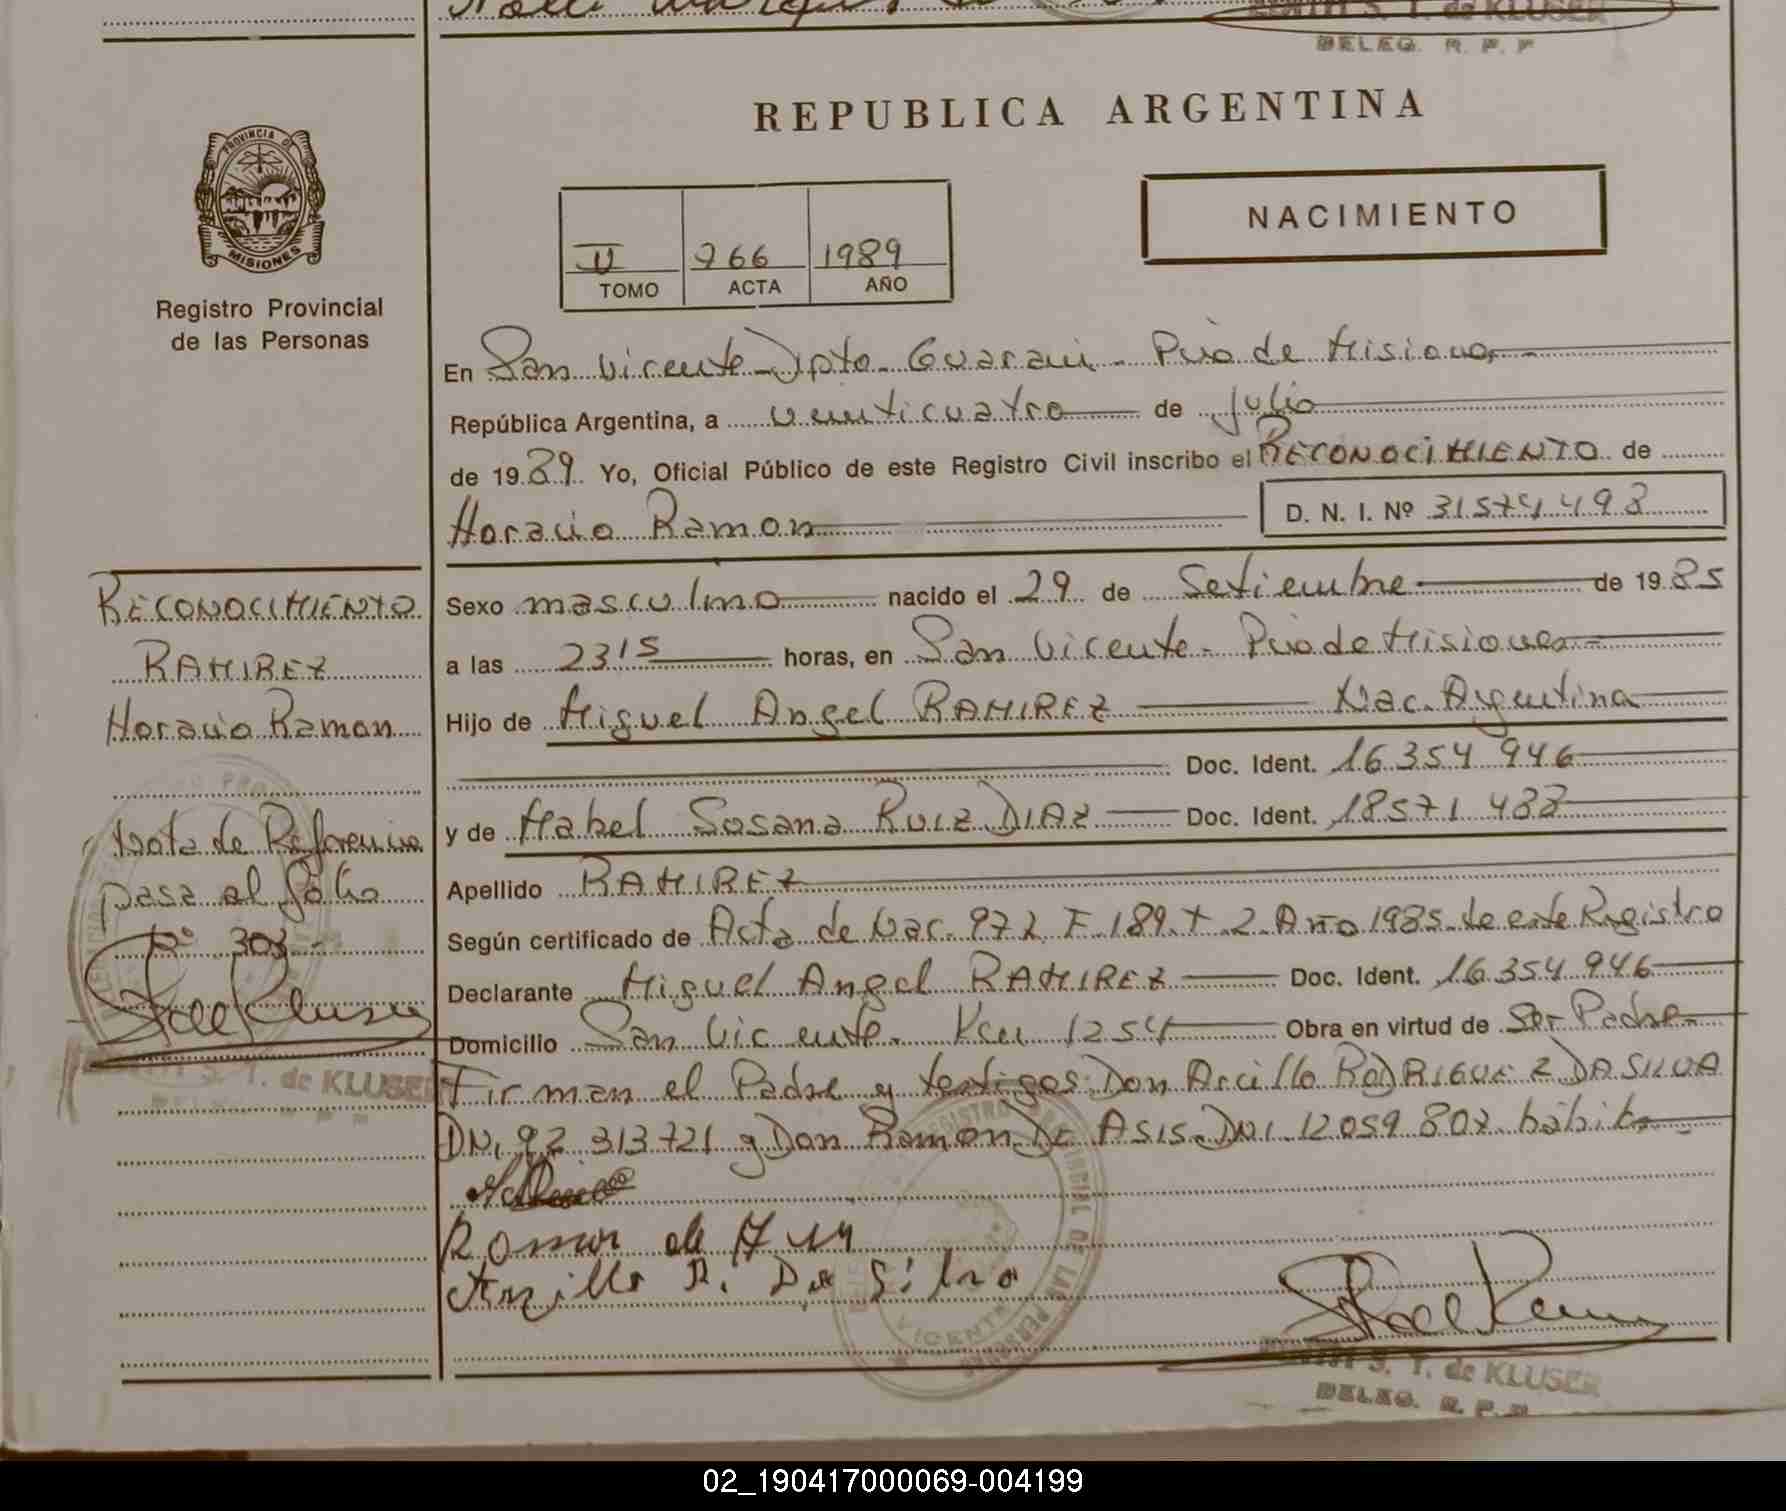 de KLUSER
DELEG. R. P. P
REPUBLICA ARGENTINA
PROVINCIA DE
MISIONES
NACIMIENTO
II 766 1989
TOMO ACTA AÑO
Registro Provincial
de las Personas
En San Vicente Dpto. Guarani - Pcia de Misiones
República Argentina, a veinticuatro de Julio
de 1989. Yo, Oficial Público de este Registro Civil inscribo el RECONOCIMIENTO de
Horacio Ramon D. N. I. Nº 31574498
RECONOCIMIENTO
RAMIREZ
Horacio Ramon
Nota de Referencia
pasa al folio
Nº 303
S. T. de KLUSER
Sexo masculino nacido el 29 de Setiembre de 1985
a las 2315 horas, en San Vicente - Pcia de Misiones
Hijo de Miguel Angel RAMIREZ Nac. Argentina
Doc. Ident. 16.354.946
y de Mabel Susana RUIZ DIAZ Doc. Ident. 18571.488
Apellido RAMIREZ
Según certificado de Acta de Nac. 972 F. 189. T. 2. Año 1985. de este Registro
Declarante Miguel Angel RAMIREZ Doc. Ident. 16.354.946
Domicilio San Vicente. Km 1254 Obra en virtud de Ser Padre
Firman el Padre y testigos: Don Arcillo RODRIGUEZ DA SILVA
DNI 92.313.721 y Don Ramon De ASIS DNI. 12.059.807. hábiles
Ramon de
R. Da Silva
VICENTE
S. T. de KLUSER
DELEG. R. P. P
02_190417000069-004199